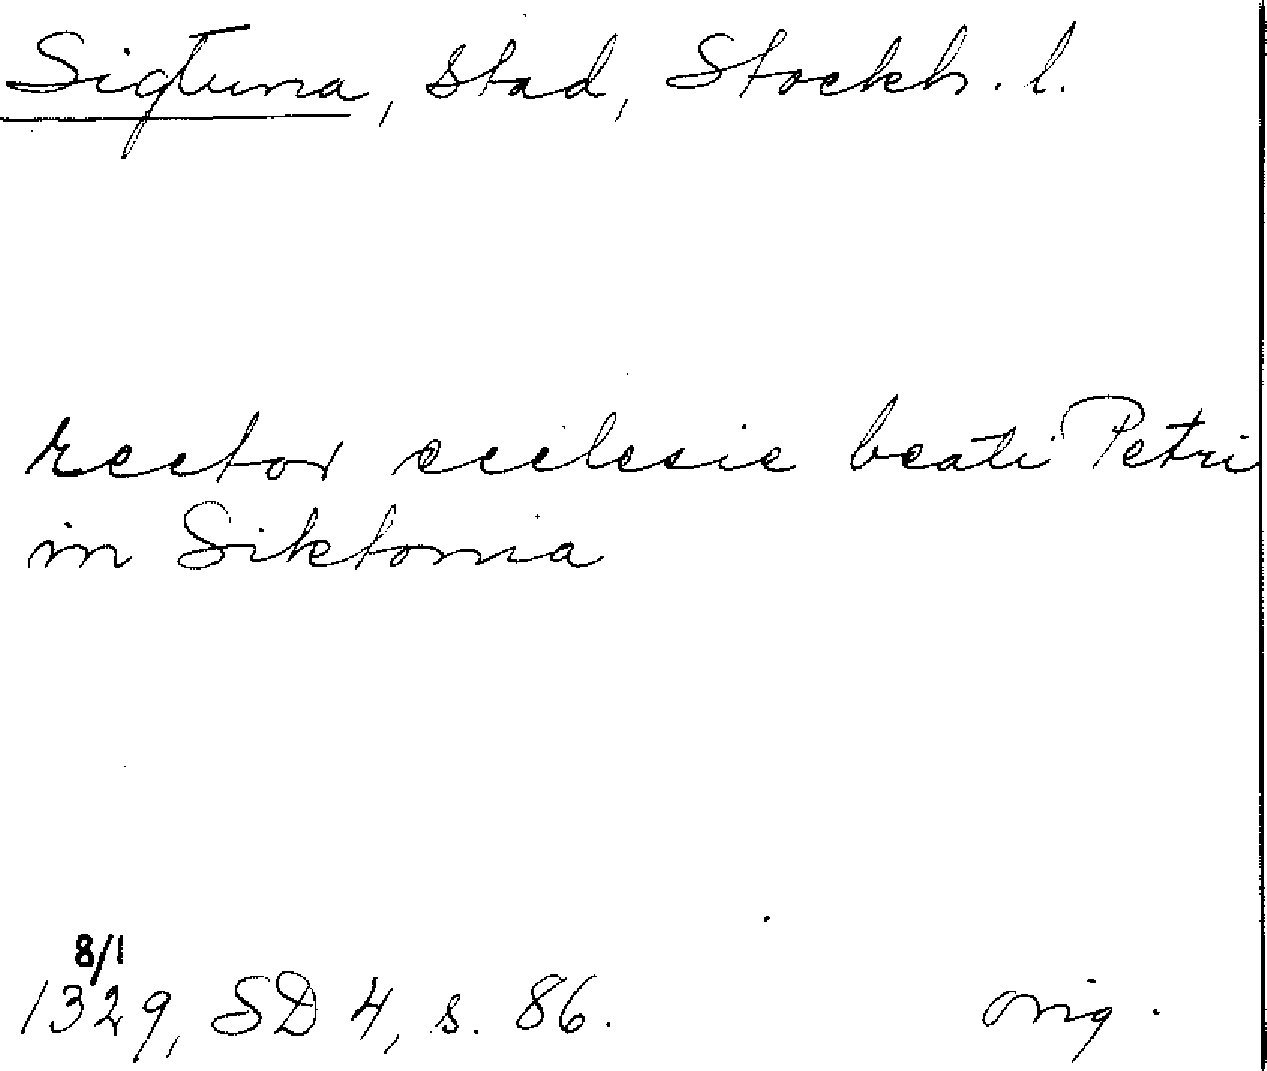 Sigtuna, stad, Stockh. l.
rector ecclesie beati Petri
in Siktonia
8/1
1329, SD 4, s. 86. orig.